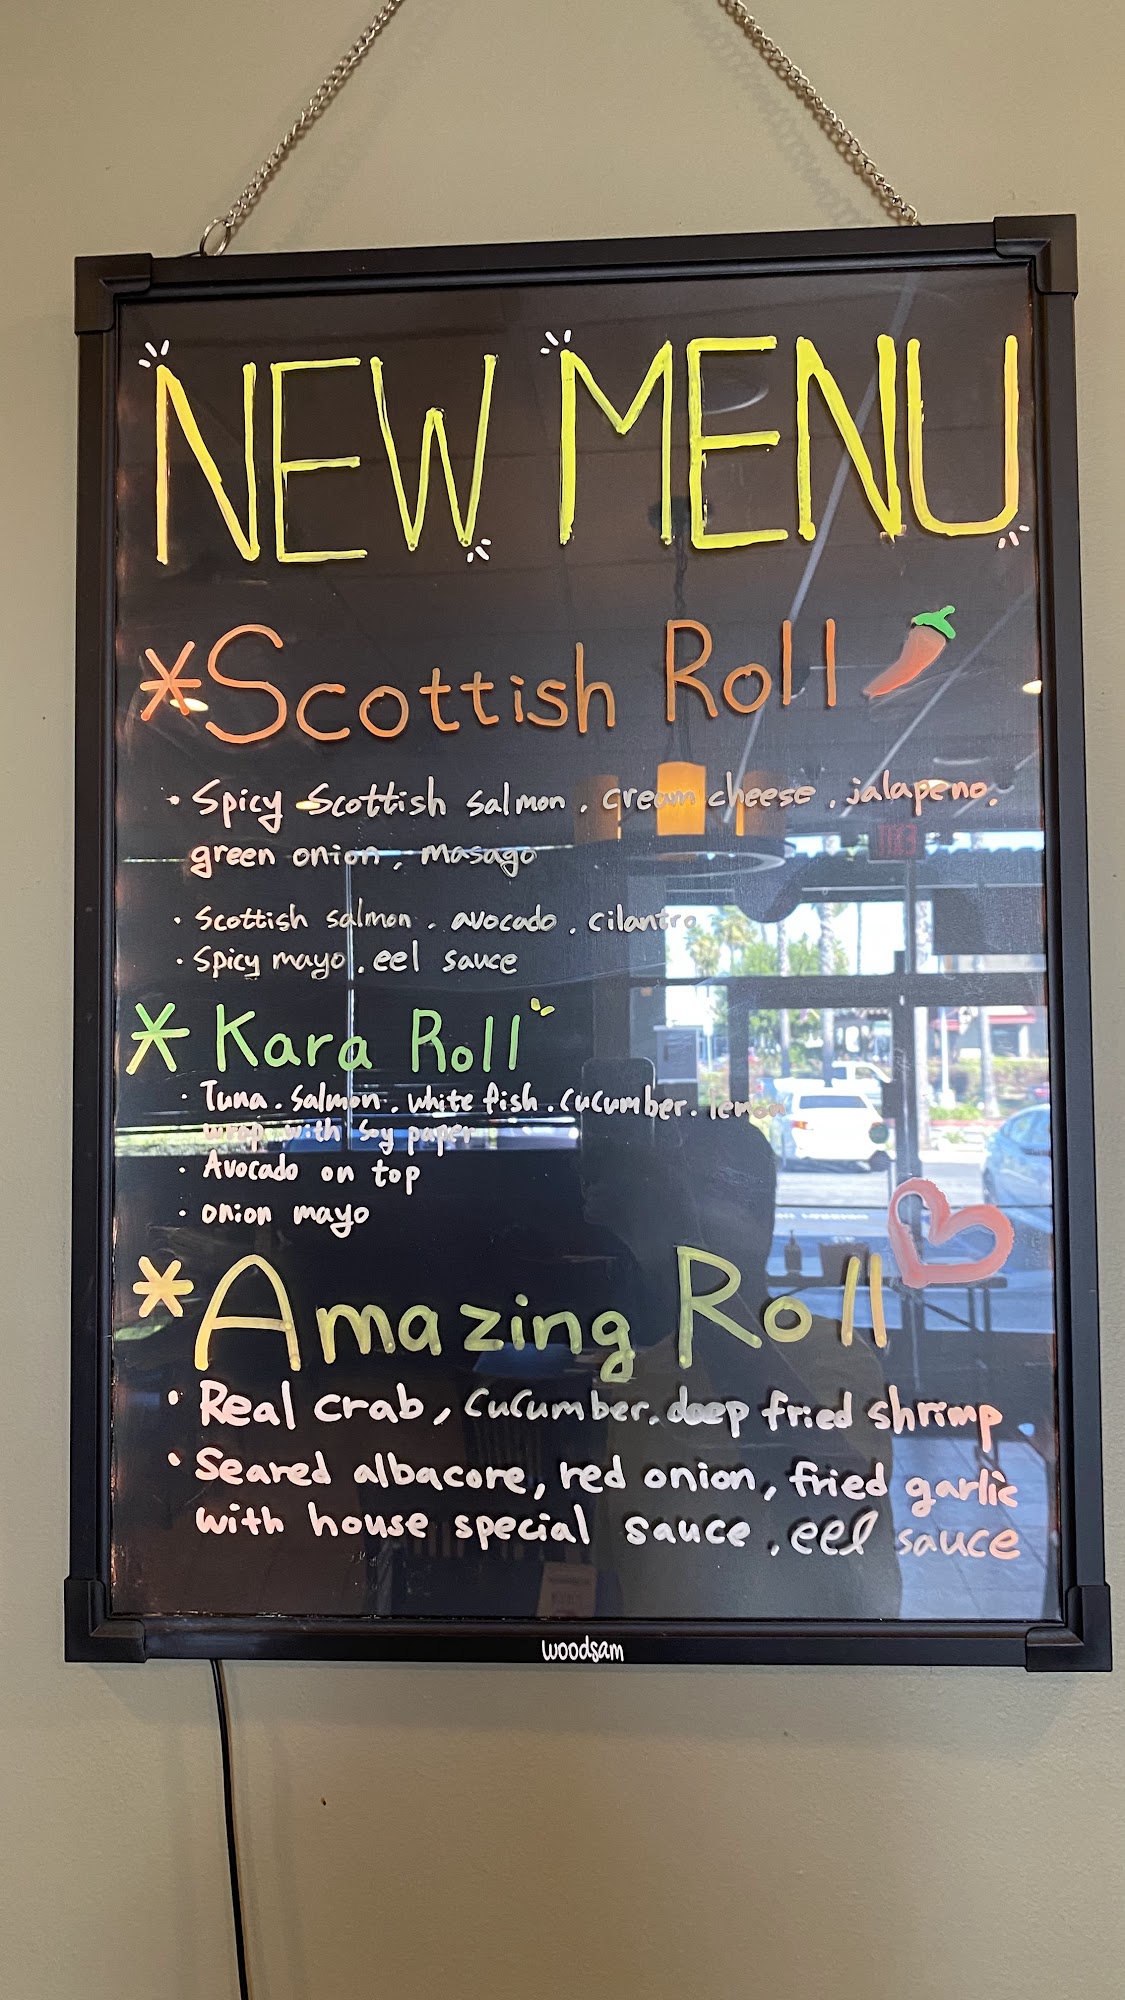 NEW MENU
*Scottish Roll
· Spicy Scottish salmon. cream cheese. jalapeno.
green onion. masago
· Scottish salmon. avocado. cilantro
· Spicy mayo. eel sauce
* Kara Roll
· Tuna. salmon. white fish. cucumber. lemon
wrap with soy paper
· Avocado on top
· onion mayo
*Amazing Roll
· Real crab, cucumber. deep fried shrimp
· Seared albacore, red onion, fried garlic
with house special sauce, eel sauce
woodsam